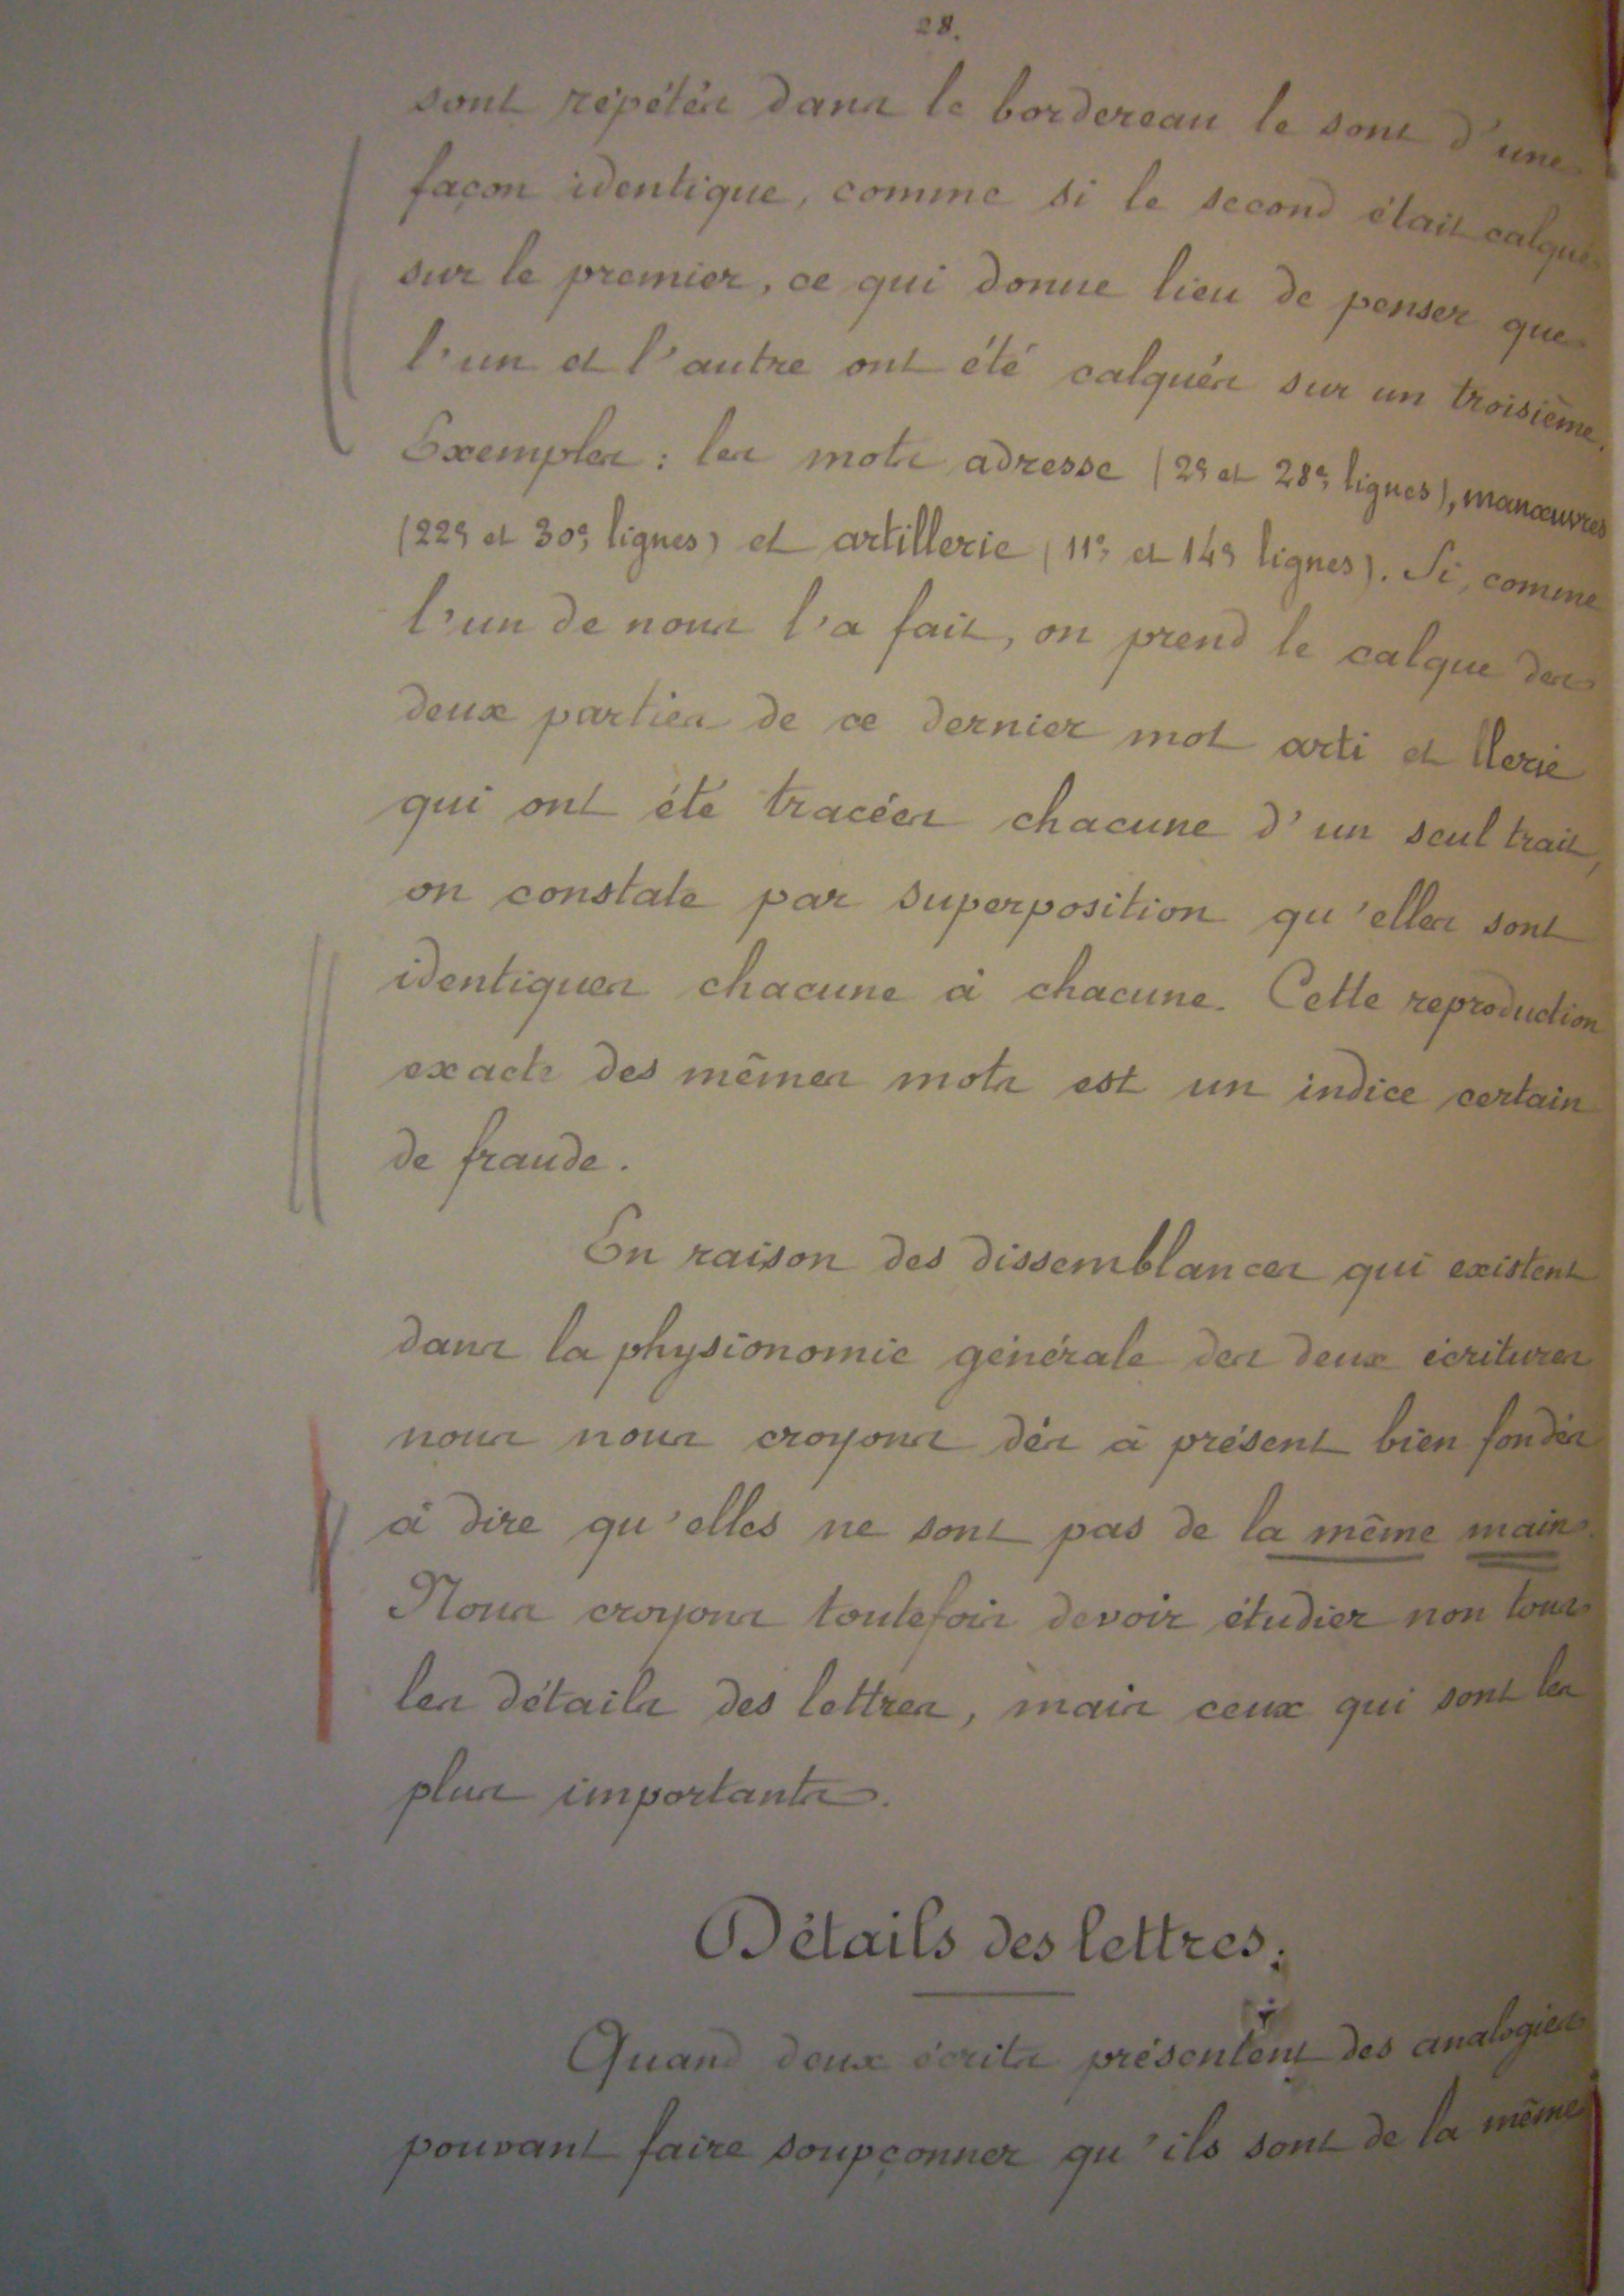 28.
sont répétés dans le bordereau le sont d'une
façon identique, comme si le second était calqué
sur le premier, ce qui donne lieu de penser que
l'un et l'autre ont été calqués sur un troisième.
Exemples : les mots adresse (2e et 28e lignes), manœuvres
(22e et 30e lignes) et artillerie (11e et 14e lignes). Si, comme
l'un de nous l'a fait, on prend le calque des
deux parties de ce dernier mot arti et llerie
qui ont été tracées chacune d'un seul trait,
on constate par superposition qu'elles sont
identiques chacune à chacune. Cette reproduction
exacte des mêmes mots est un indice certain
de fraude.
En raison des dissemblances qui existent
dans la physionomie générale des deux écritures
nous nous croyons dès à présent bien fondés
à dire qu'elles ne sont pas de la même main.
Nous croyons toutefois devoir étudier non tous
les détails des lettres, mais ceux qui sont les
plus importants.
Détails des lettres :
Quand deux écrits présentent des analogies
pouvant faire soupçonner qu'ils sont de la même